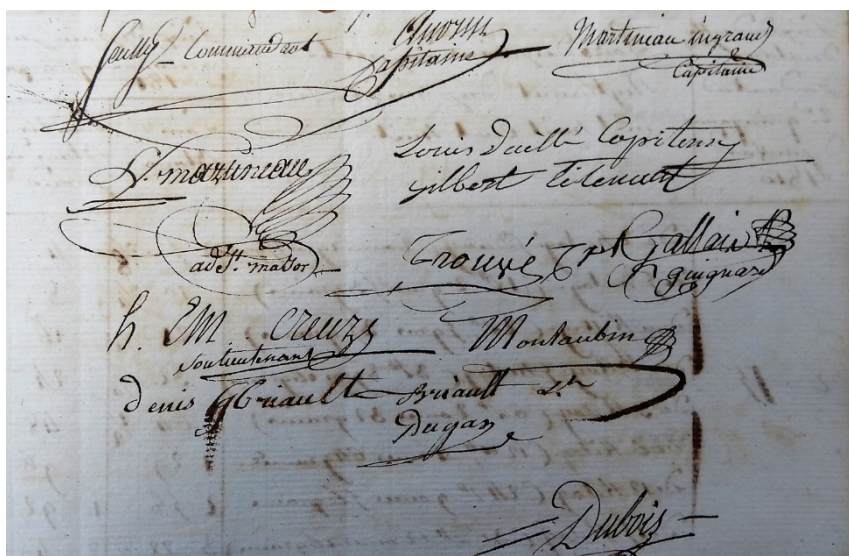 Commandant
Capitaine
Martineau ingrand
Capitaine
L. martineau
adjt. major
Louis Daillé Capitene
gilbert
Trouvé Gallais
guignard
h. Em Creuzé
Soulieutenant
Montaubin
denis Briault Briault
Dugas
Dubois